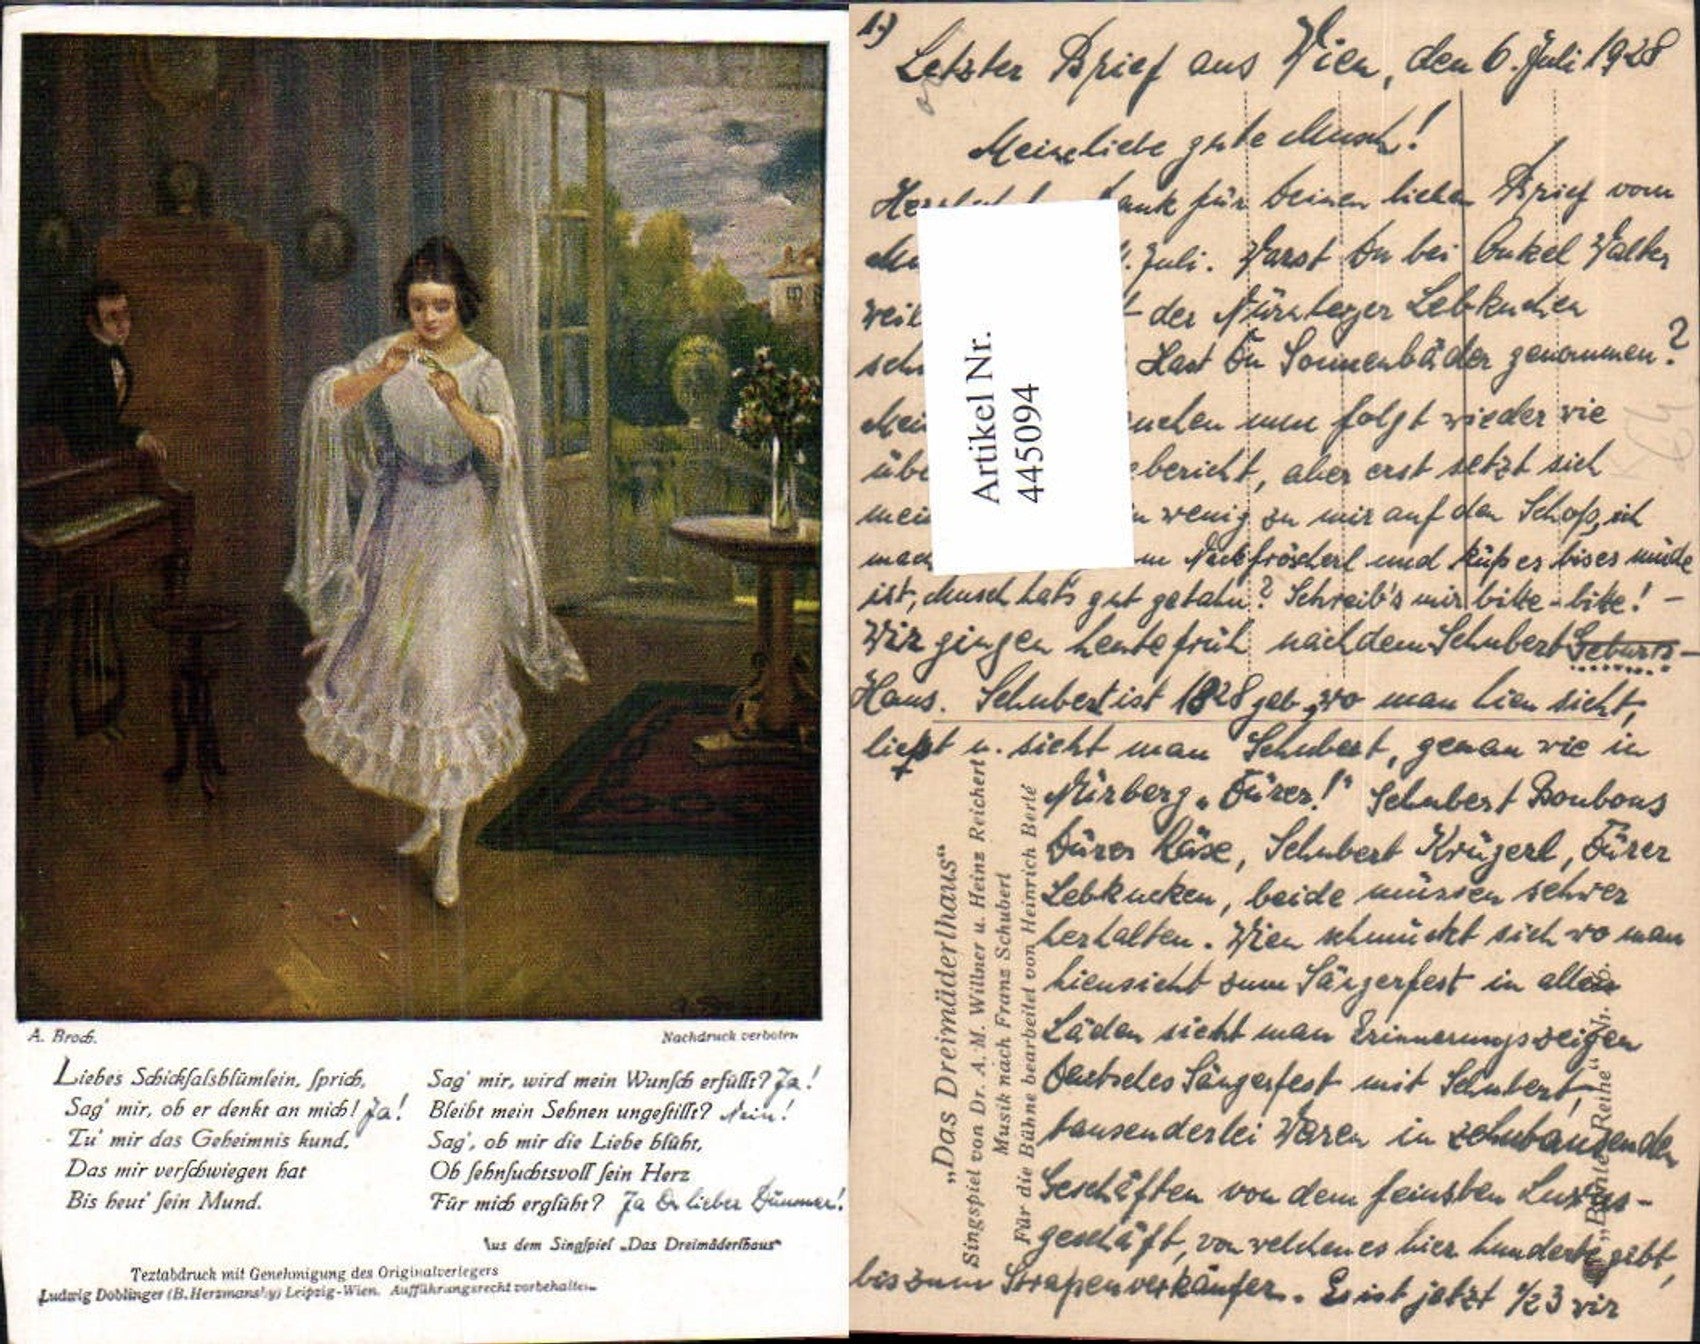 A. Broch.
Nachdruck verboten
Liebes Schicksalsblümlein, sprich,
Sag' mir, ob er denkt an mich! Ja!
Tu' mir das Geheimnis kund,
Das mir verschwiegen hat
Bis heut' sein Mund.
Sag' mir, wird mein Wunsch erfüllt? Ja!
Bleibt mein Sehnen ungestillt? Nein!
Sag', ob mir die Liebe blüht,
Ob sehnsuchtsvoll sein Herz
Für mich erglüht? Ja Du lieber Dummer!
Aus dem Singspiel „Das Dreimäderlhaus“
Textabdruck mit Genehmigung des Originalverlegers
Ludwig Doblinger (B. Herzmansky) Leipzig-Wien. Aufführungsrecht vorbehalten
1.)
Letzter Brief aus Wien, den 6. Juli 1928
Meine liebe gute Musch!
ank für Deinen lieben Brief vom
Juli. Warst Du bei Onkel Walter
weil der Nürnberger Lebkuchen
Hast Du Sonnenbäder genommen?
nun folgt wieder wie
übe ebericht, aber erst setzt sich
mei n wenig zu mir auf den Schoß, ich
mach und küß es bis es müde
ist, Musch hat's gut getahn? Schreib's mir bitte - bitte! -
Wir gingen heute früh nach dem Schubert Geburts-
Haus. Schubert ist 1828 geb. wo man hien sieht,
ließt u. sieht man Schubert, genau wie in
Nürberg „Dürer!“ Schubert Bonbons
Dürer Käse, Schubert Krügerl, Dürer
Lebkucken, beide müssen schwer
herhalten. Wien schmückt sich wo man
hiensieht zum Sängerfest in allen
Läden sieht man Erinnerungszeigen
Deutsches Sängerfest mit Schubert,
tausenderlei Waren in zehntausenden
Geschäften von dem feinsten Luxus-
geschäft, von welchen es hier hunderte gibt,
bis zum Strassenverkäufer. Es ist jetzt ½ 3 wir
Artikel Nr.
445094
„Das Dreimäderlhaus“
Singspiel von Dr. A. M. Willner u. Heinz Reichert
Musik nach Franz Schubert
Für die Bühne bearbeitet von Heinrich Berté